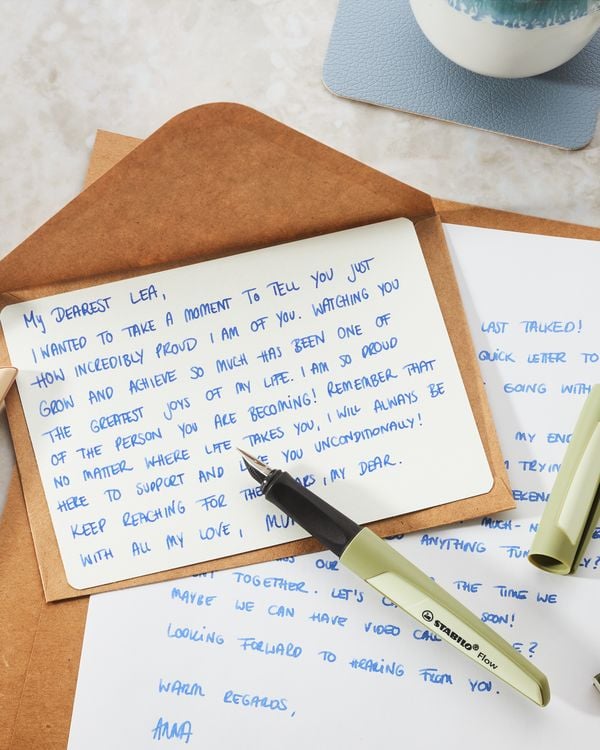 My DEAREST LEA,
I WANTED TO TAKE A MOMENT TO TELL YOU JUST
HOW INCREDIBLY PROUD I AM OF YOU. WATCHING YOU
GROW AND ACHIEVE SO MUCH HAS BEEN ONE OF
THE GREATEST JOYS OF MY LIFE. I AM SO PROUD
OF THE PERSON YOU ARE BECOMING! REMEMBER THAT
NO MATTER WHERE LIFE TAKES YOU, I WILL ALWAYS BE
HERE TO SUPPORT AND YOU UNCONDITIONALLY!
KEEP REACHING FOR THE , MY DEAR.
WITH ALL MY LOVE,
LAST TALKED!
QUICK LETTER TO
GOING WITH
MY
MUCH-
ANYTHING
OUR
TOGETHER. LET'S THE TIME WE
MAYBE WE CAN HAVE VIDEO SOON!
LOOKING FORWARD TO HEARING FROM YOU.
WARM REGARDS,
ANNA
STABILO Flow